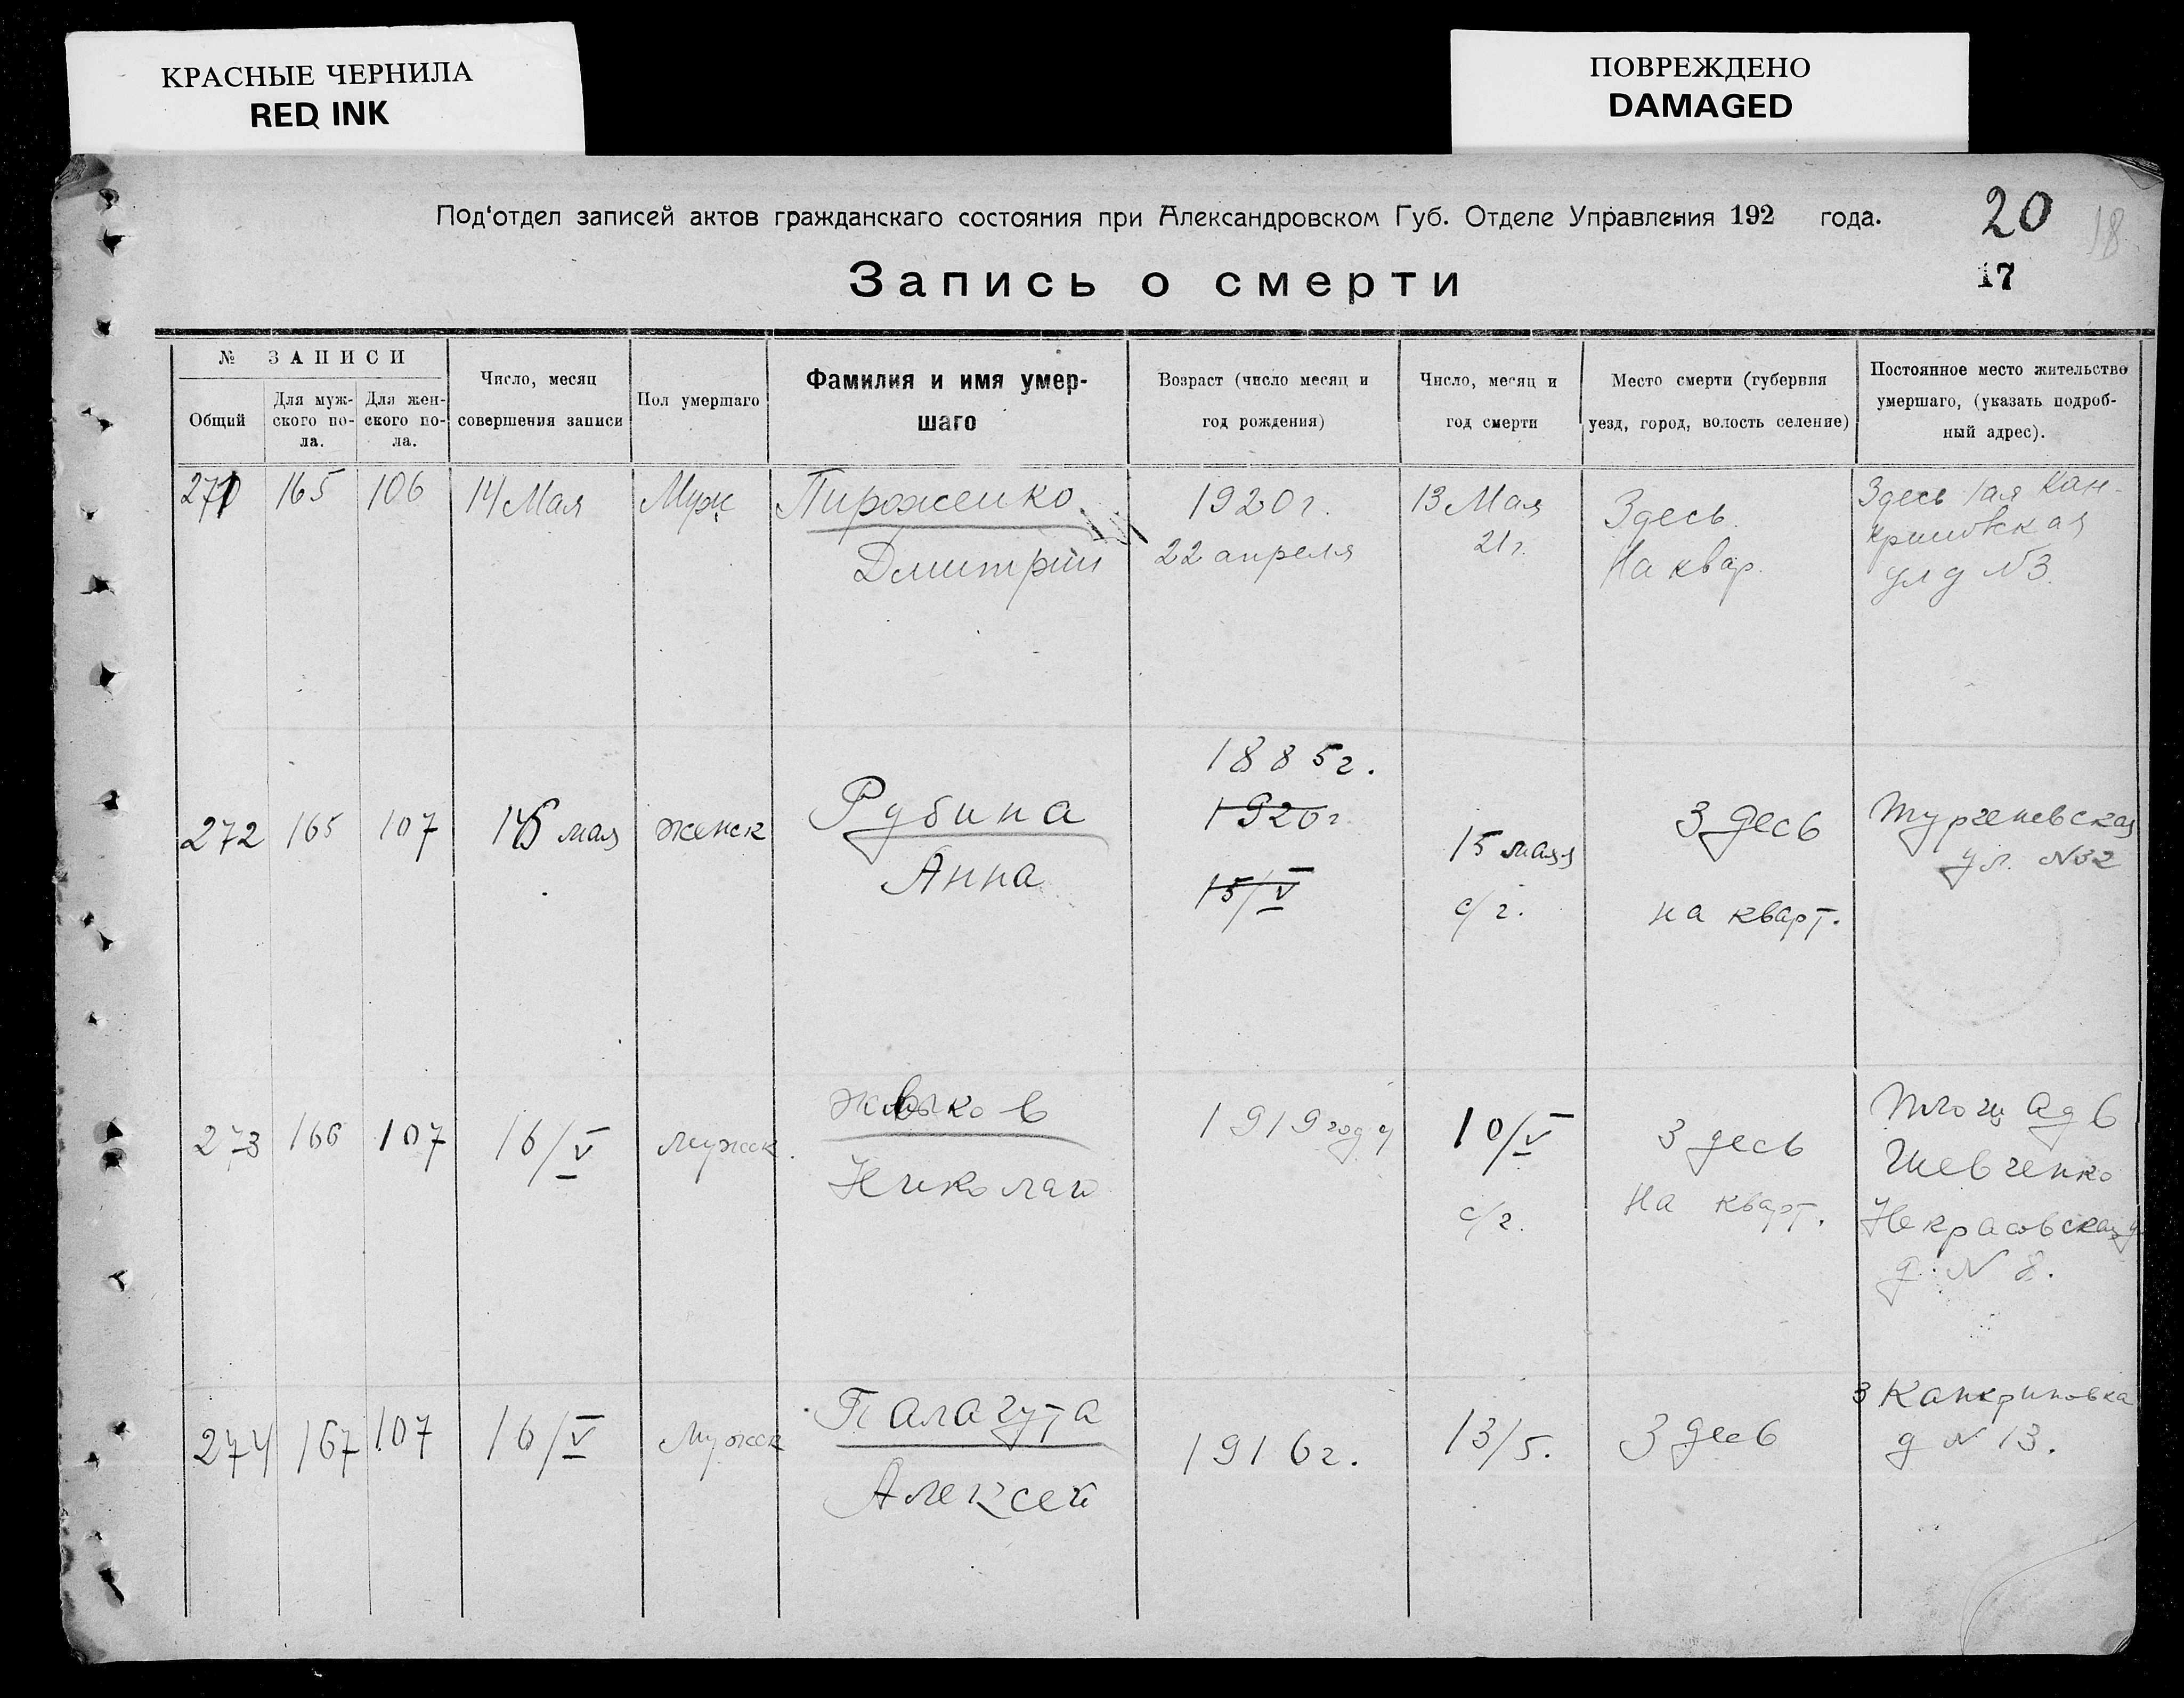 КРАСНЫЕ ЧЕРНИЛА
RED INK
ПОВРЕЖДЕНО
DAMAGED
Под'отдел записей актов гражданскаго состояния при Александровском Губ. Отделе Управления 192 года.
20
18
Запись о смерти
17
№ ЗАПИСИ
Общий
Для муж-
ского по-
ла.
Для жен-
ского по-
ла.
Число, месяц
совершения записи
Пол умершаго
Фамилия и имя умер-
шаго
Возраст (число месяц и
год рождения)
Число, месяц и
год смерти
Место смерти (губерния
уезд, город, волость селение)
Постоянное место жительство
умершаго, (указать подроб-
ный адрес).
271
165
106
14 Мая
Муж
Пироженко
Дмитрий
1920 г.
22 апреля
13 Мая
21 г.
Здесь.
На квар.
Здесь 1ая Кан-
криновская
ул д N3.
272
165
107
мая
женск
Рубина
Анна
1885 г.
1920 г
15/V
15 мая
с/г.
Здесь
на кварт.
Тургеневская
ул. N32
273
166
107
16/V
мужск.
Николай
1919 году
10/V
с/г.
Здесь
На кварт.
Площадь
Шевченко
Некрасовская
д. N 8.
274
167
107
16/V
Мужск
Палагута
Алексей
1916 г.
13/5.
Здесь
3 Канкриновка
д N 13.